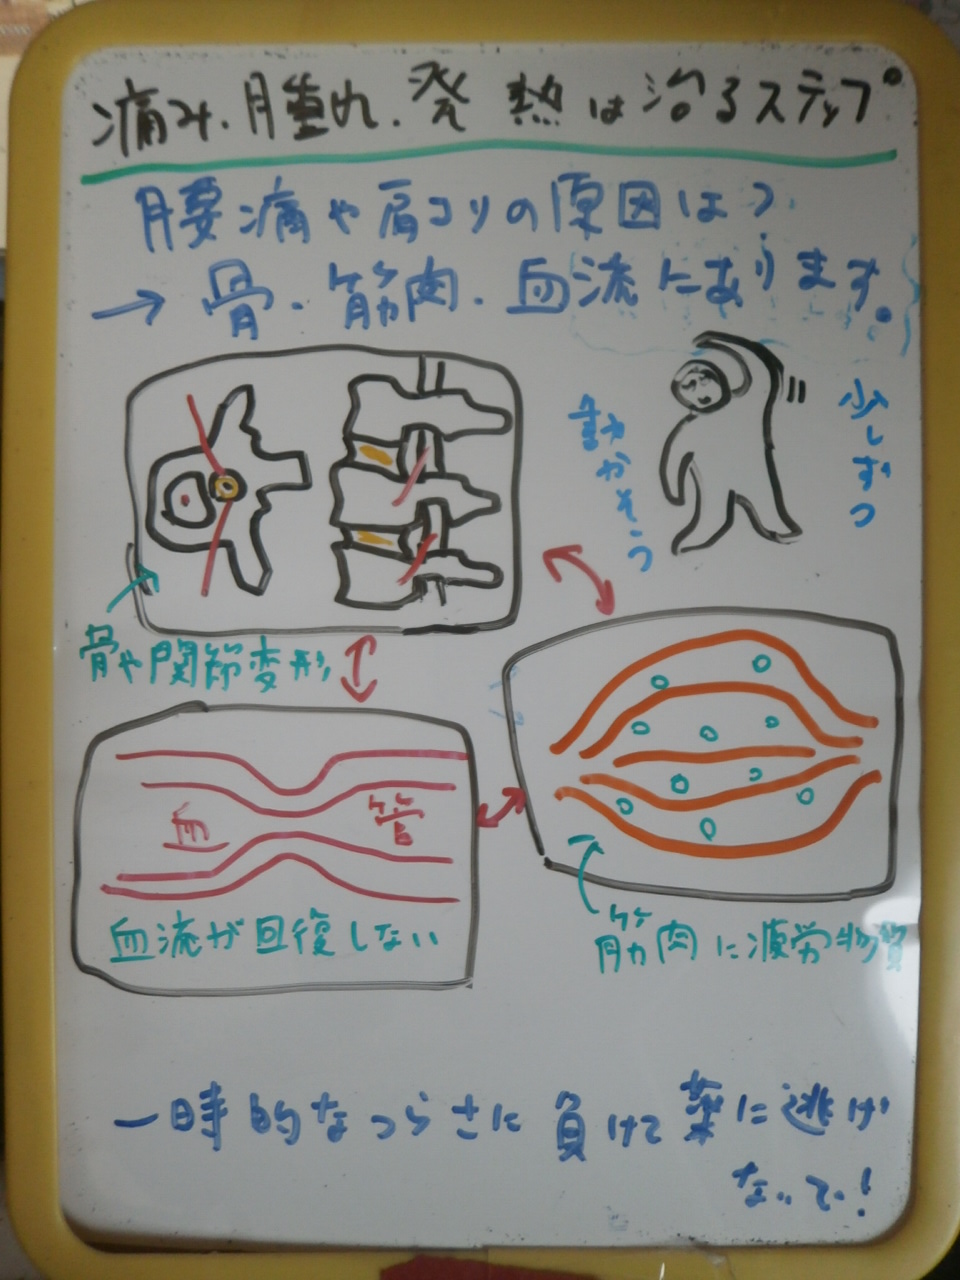 痛み.腫れ.発熱は治るステップ
腰痛や肩コリの原因は?
→骨・筋肉・血流にあります。
少しずつ
動かそう
骨や関節変形
血管
血流が回復しない
筋肉に疲労物質
一時的なつらさに負けて薬に逃げ
ないで!